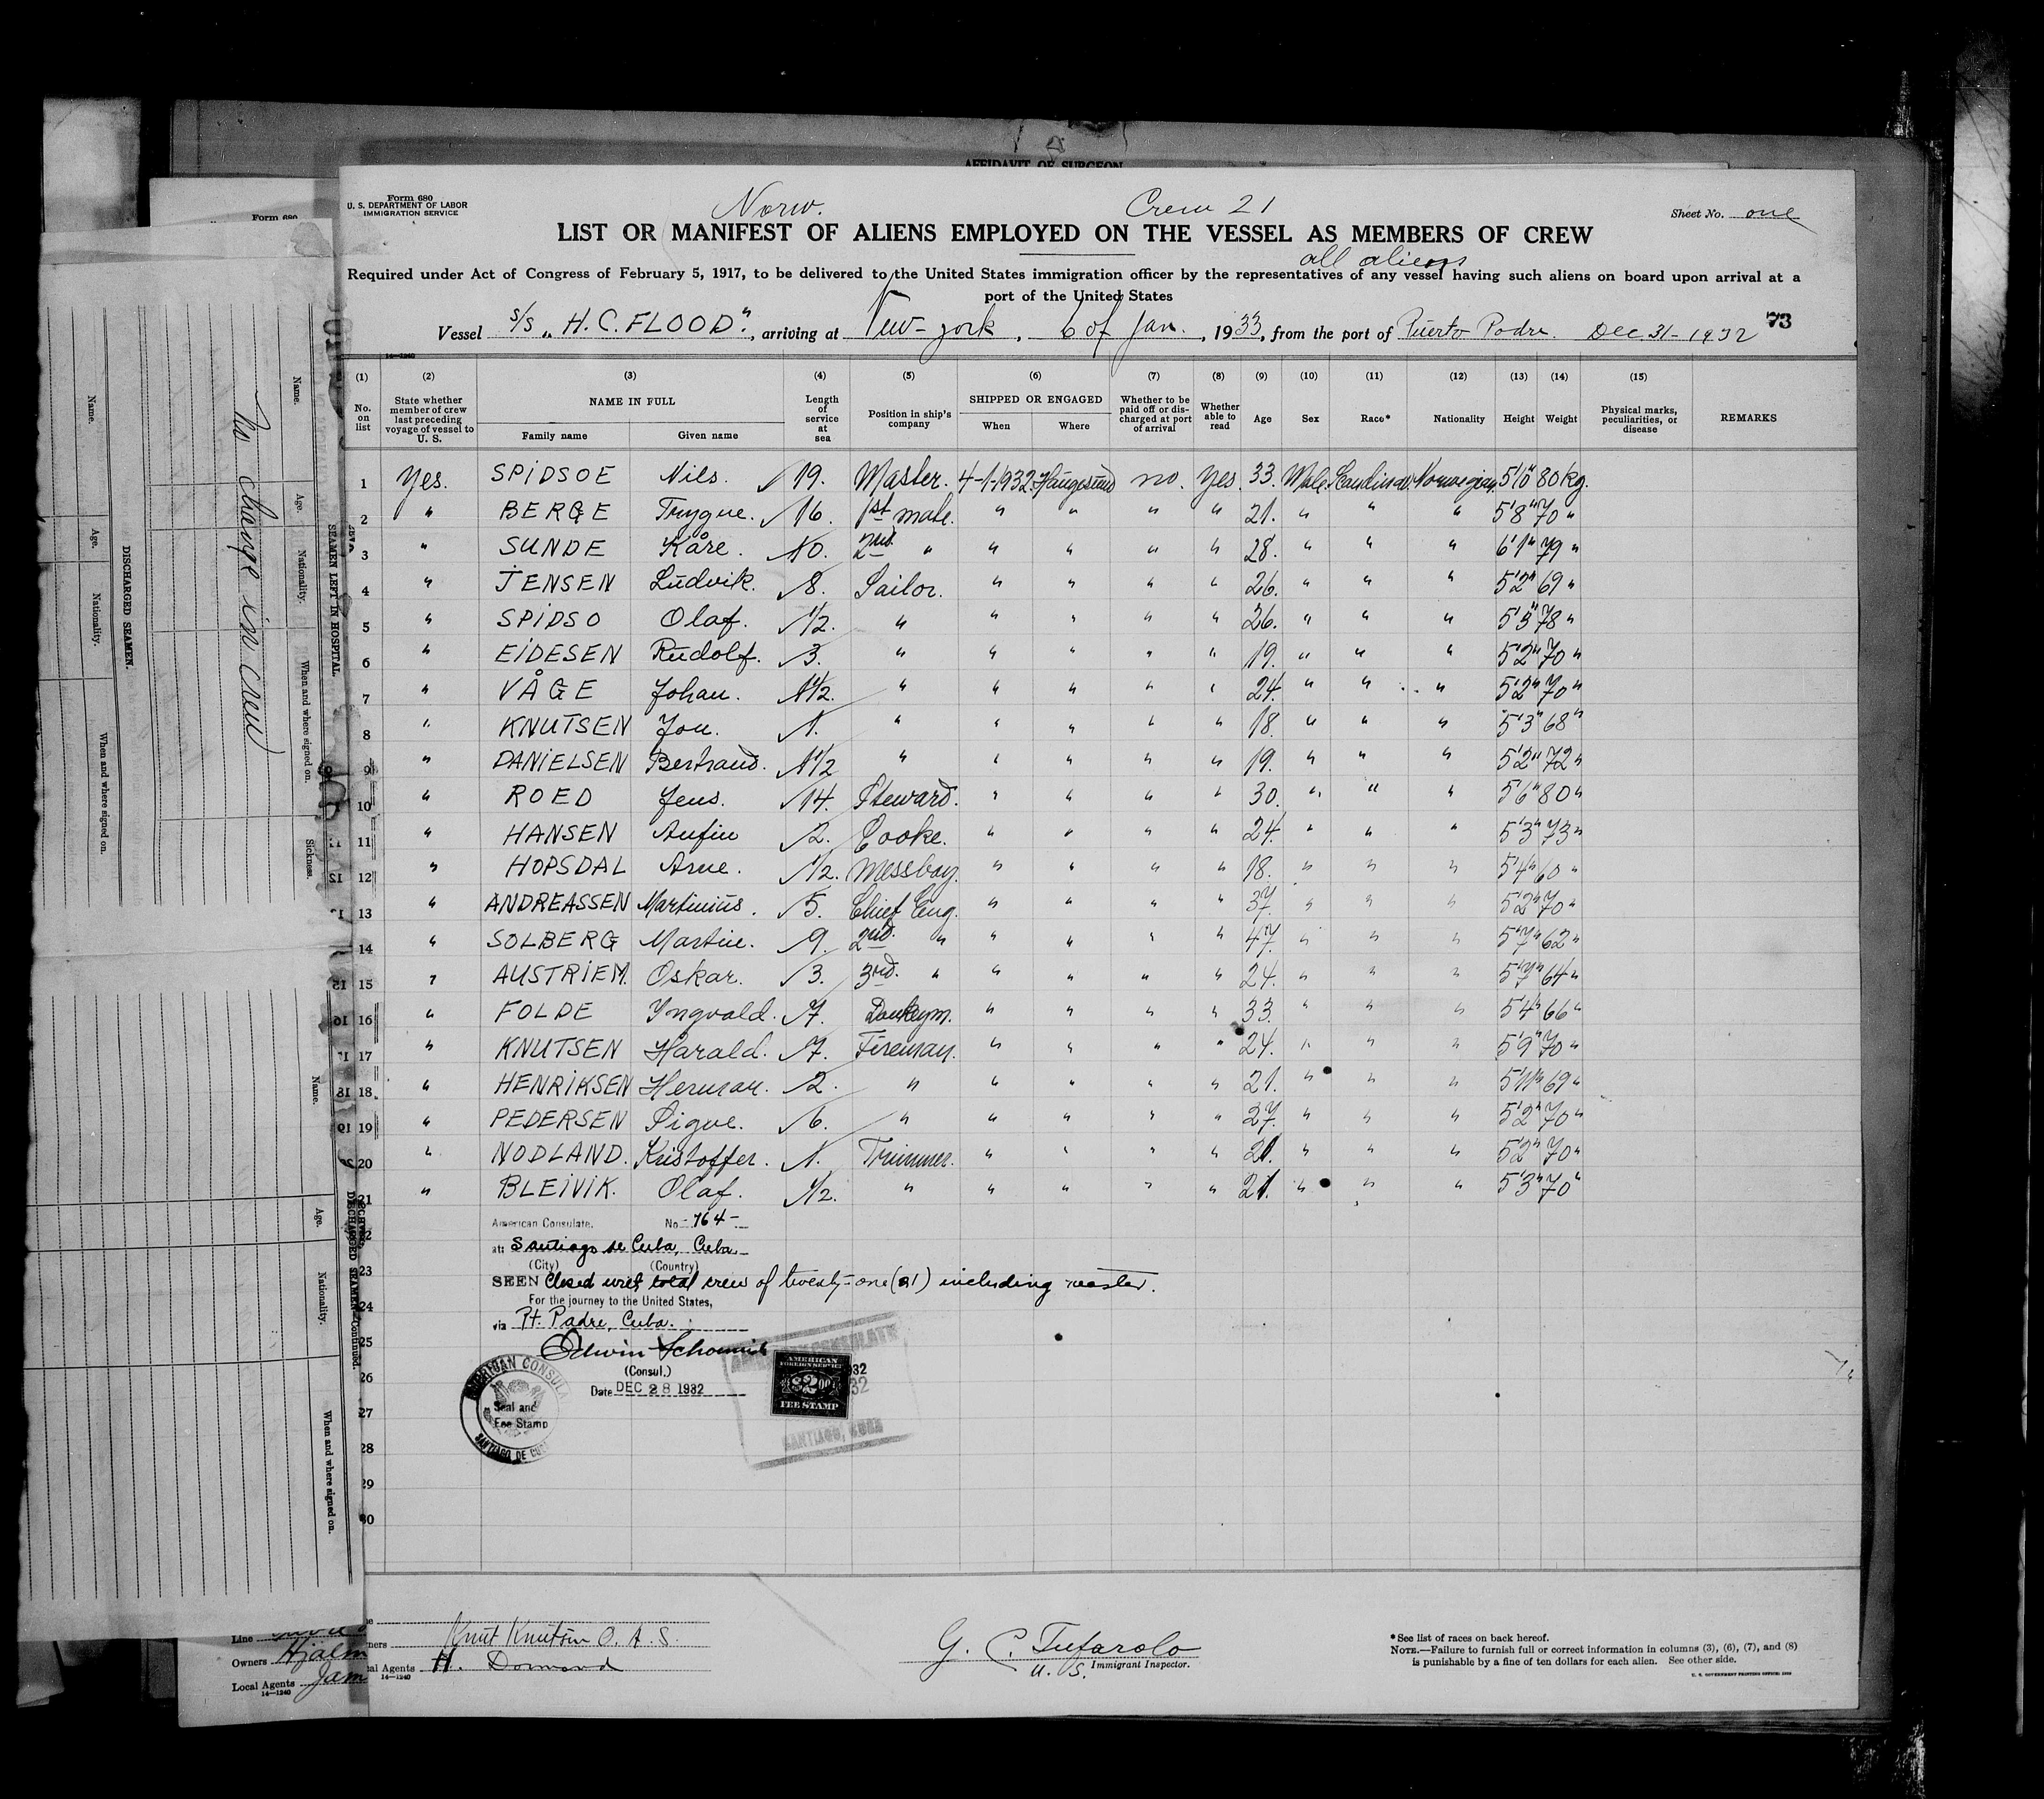 AFFIDAVIT OF SURGEON
Form 680
U. S. DEPARTMENT OF LABOR
IMMIGRATION SERVICE
Norw.
Crew 21
Sheet No. one
LIST OR MANIFEST OF ALIENS EMPLOYED ON THE VESSEL AS MEMBERS OF CREW
all aliens
Required under Act of Congress of February 5, 1917, to be delivered to the United States immigration officer by the representatives of any vessel having such aliens on board upon arrival at a
port of the United States
Vessel S/S „H.C. FLOOD", arriving at New-york, 6 of Jan., 1933, from the port of Puerto Padre. Dec. 31-1932 73
14—1240
(1) (2) (3) (4) (5) (6) (7) (8) (9) (10) (11) (12) (13) (14) (15)
No. on list State whether member of crew last preceding voyage of vessel to U. S. NAME IN FULL Family name Given name Length of service at sea Position in ship's company SHIPPED OR ENGAGED When Where Whether to be paid off or discharged at port of arrival Whether able to read Age Sex Race* Nationality Height Weight Physical marks, peculiarities, or disease REMARKS
1 Yes. SPIDSOE Nils. 19. Master. 4-1-1932. Haugesund no. Yes. 33. Male. Scandinav. Norwegian. 5'10" 80 kg.
2 " BERGE Trygve. 16. 1st mate. " " " " 21. " " " 5'8" 70 "
3 " SUNDE Kåre. 10. 2nd " " " " " 28. " " " 6'1" 79 "
4 " JENSEN Ludvik. 8. Sailor. " " " " 26. " " " 5'2" 69 "
5 " SPIDSO Olaf. 1/2. " " " " " 26. " " " 5'3" 78 "
6 " EIDESEN Rudolf. 3. " " " " " 19. " " " 5'2" 70 "
7 " VÅGE Johan. 1 1/2. " " " " " 24. " " " 5'2" 70 "
8 " KNUTSEN Jon. 1. " " " " " 18. " " " 5'3" 68 "
9 " DANIELSEN Bertrand. 1 1/2 " " " " " 19. " " " 5'2" 72 "
10 " ROED Jens. 14. Steward. " " " " 30. " " " 5'6" 80 "
11 " HANSEN Anfin 2. Cooke. " " " " 24. " " " 5'3" 73 "
12 " HOPSDAL Arne. 1/2. Messboy. " " " " 18. " " " 5'4" 60 "
13 " ANDREASSEN Martinius. 5. Chief Eng. " " " " 37. " " " 5'2" 70 "
14 " SOLBERG Martin. 9. 2nd. " " " " " 47. " " " 5'7" 62 "
15 " AUSTRIEM. Oskar. 3. 3rd. " " " " " 24. " " " 5'7" 64 "
16 " FOLDE Yngvald. 7. Donkeym. " " " " 33. " " " 5'4" 66 "
17 " KNUTSEN Harald. 7. Fireman. " " " " 24. " " " 5'9" 70 "
18 " HENRIKSEN Herman. 2. " " " " " 21. " " " 5'11" 69 "
19 " PEDERSEN Signe. 6. " " " " " 27. " " " 5'2" 70 "
20 " NODLAND. Kristoffer. 1. Trimmer. " " " " 21. " " " 5'2" 70 "
21 " BLEIVIK. Olaf. 1/2. " " " " " 21. " " " 5'3" 70 "
American Consulate. No. 764-
at: Santiago de Cuba, Cuba
(City) (Country)
SEEN Closed with total crew of twenty-one (21) including master.
For the journey to the United States,
via Pt. Padre, Cuba.
Edwin Schoenrich
(Consul.)
Date DEC 28 1932
AMERICAN CONSULATE
Seal and
Fee Stamp
SANTIAGO DE CUBA
AMERICAN
FOREIGN SERVICE
$2.00
FEE STAMP
SANTIAGO, CUBA
23
24
25
26
27
28
29
30
Knut Knutsen O.A.S.
Local Agents H. Dormond
14—1240
G. C. Tufarolo
U. S. Immigrant Inspector.
*See list of races on back hereof.
NOTE.—Failure to furnish full or correct information in columns (3), (6), (7), and (8)
is punishable by a fine of ten dollars for each alien. See other side.
No change in crew
DISCHARGED SEAMEN.
SEAMEN LEFT IN HOSPITAL
Name. Age. Nationality. When and where signed on. Sickness.
DISCHARGED SEAMEN—Continued.
Name. Age. Nationality. When and where signed on.
Line
Owners Hjalm
Local Agents Jam
14—1240